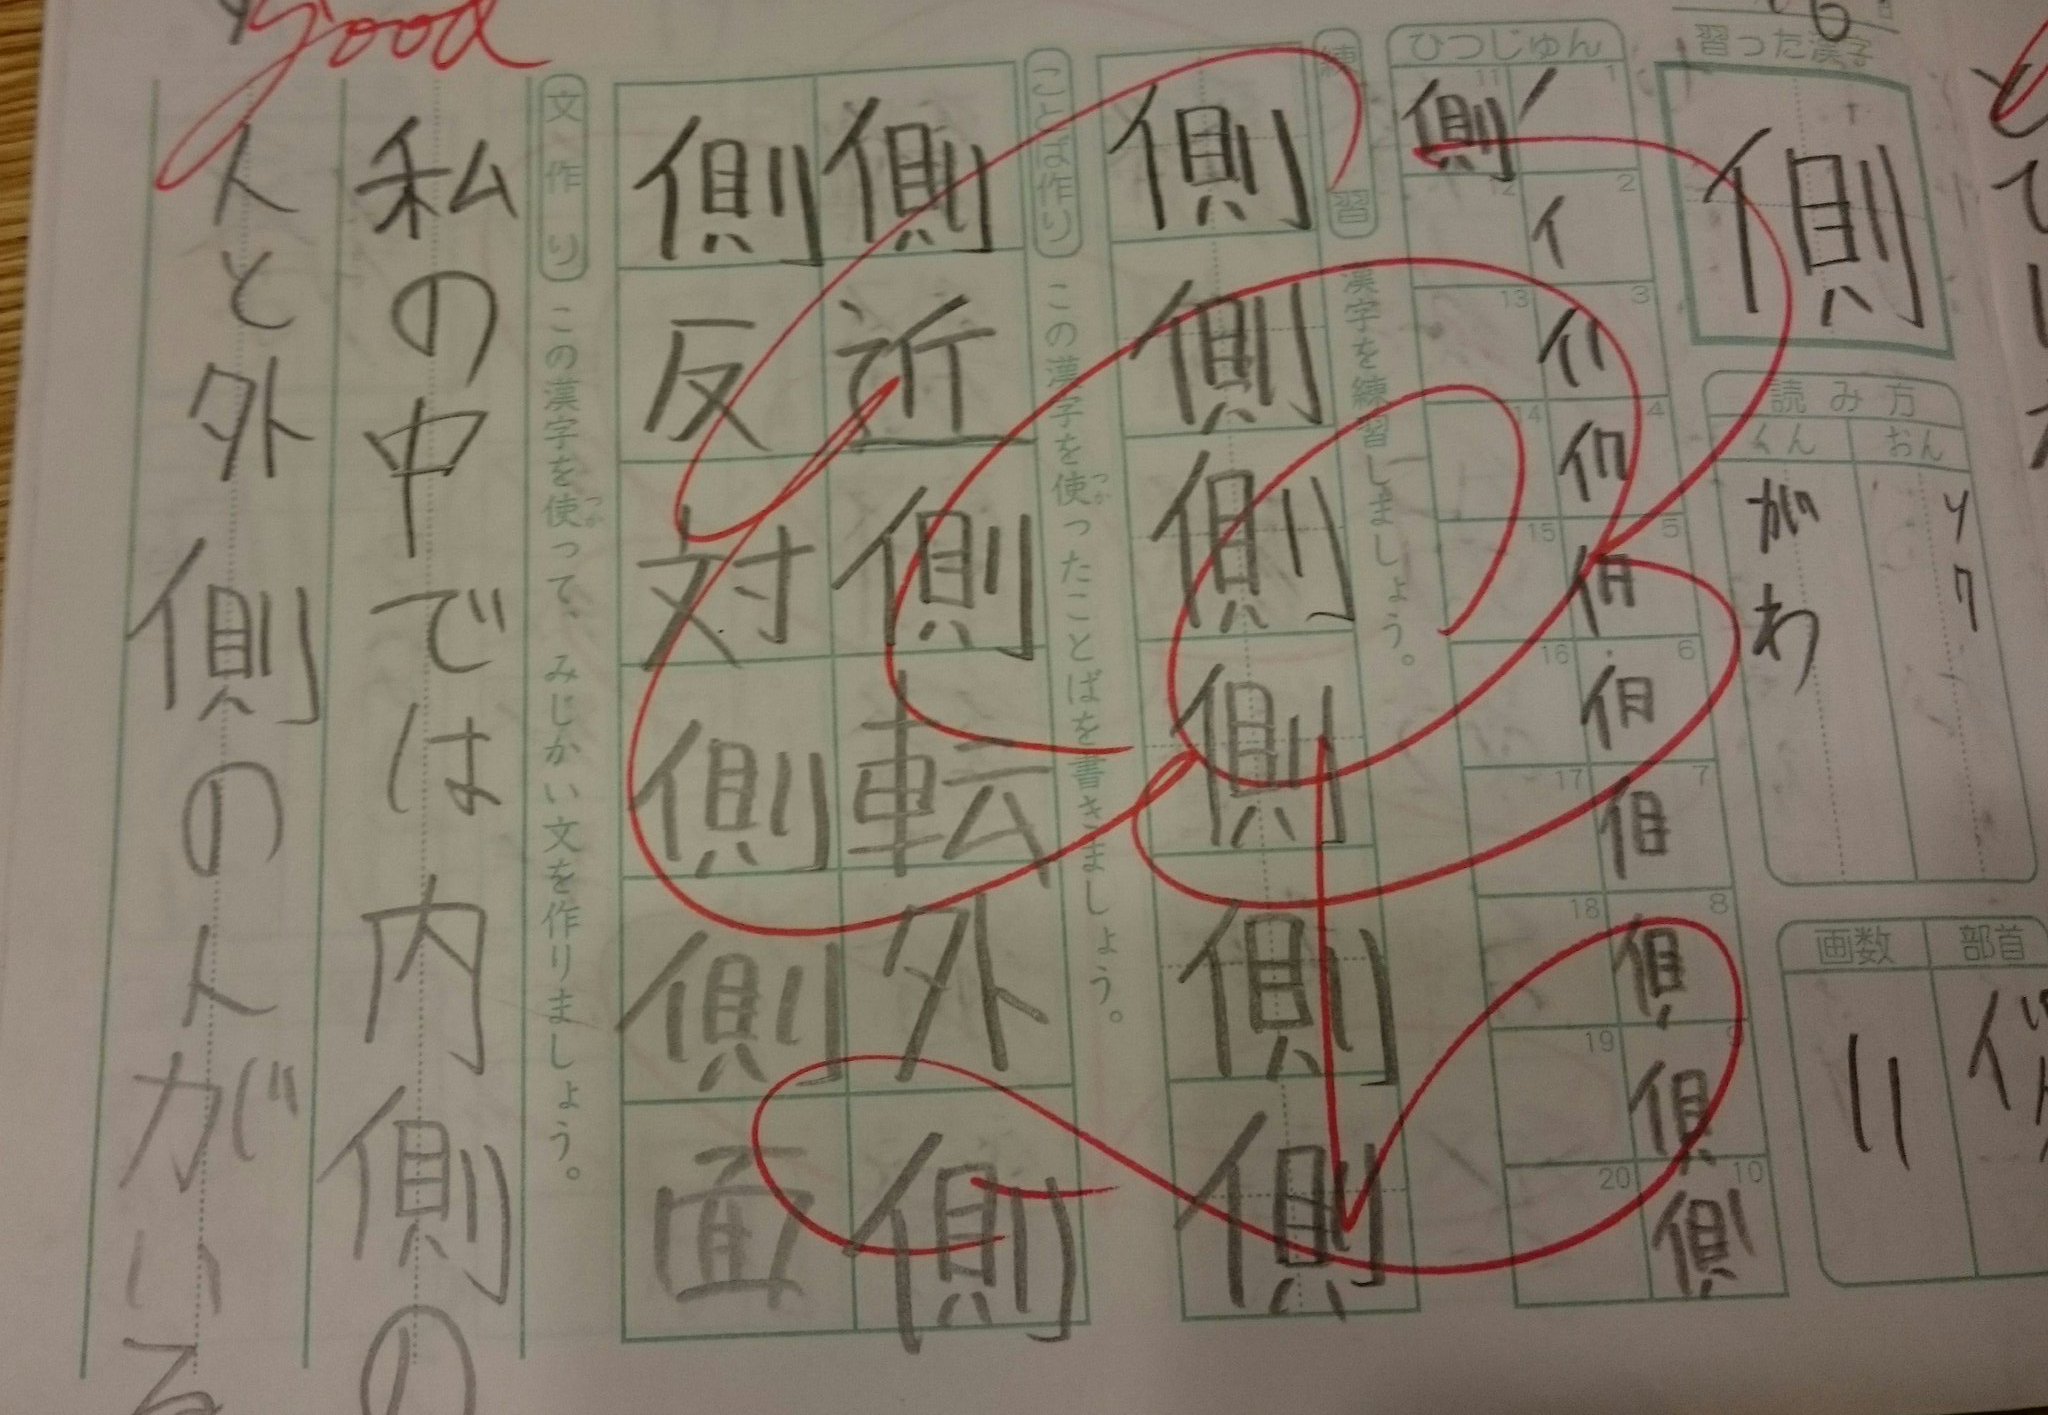 習った漢字
側
読み方
おん
ソク
くん
がわ
部首
画数
11
ひつじゅん
1 2 3 4 5 6 7 8 9 10
11 12 13 14 15 16 17 18 19 20
側
練習 漢字を練習しましょう。
側側側側側側
ことば作り この漢字を使ったことばを書きましょう。
つか
側近側転外側
側反対側側面
文作り この漢字を使って、みじかい文を作りましょう。
つか
私の中では内側の
人と外側の人がいる
good